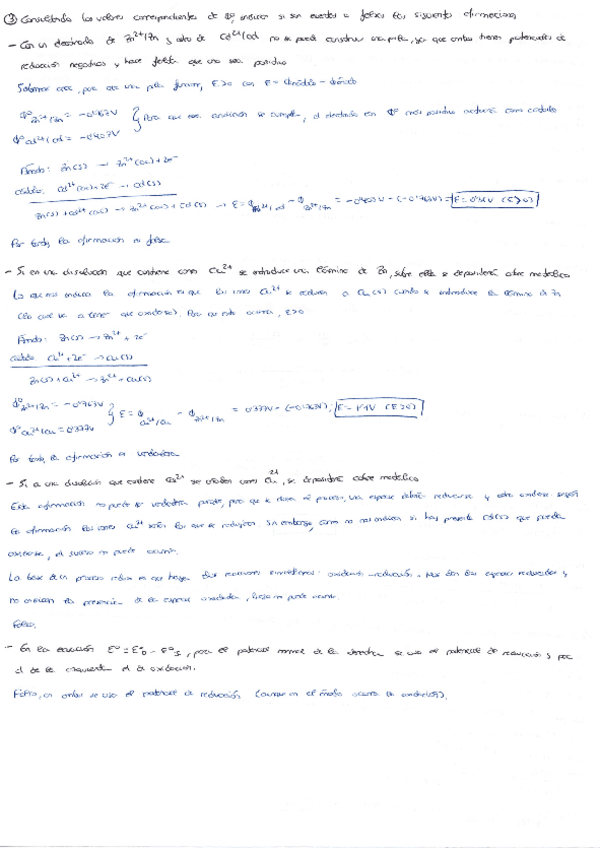 ③ Consultando los valores correspondientes de φº, indican si son ciertas o falsas las siguientes afirmaciones
- Con un electrodo de Zn²⁺/Zn y otro de Cd²⁺/Cd no se puede construir una pila, ya que ambos tienen potenciales de
reducción negativos y hace falta que uno sea positivo
Sabemos que, para que una pila funcione, E>0 con E = cátodo - ánodo
φº Zn²⁺/Zn = -0'763V
φº Cd²⁺/Cd = -0'403V
Para que esa condición se cumpla, el electrodo con φº más positivo actuará como cátodo
Ánodo: Zn(s) → Zn²⁺(ac) + 2e⁻
Cátodo: Cd²⁺(ac) + 2e⁻ → Cd(s)
Zn(s) + Cd²⁺(ac) → Zn²⁺(ac) + Cd(s) → E = φ Cd²⁺/Cd - φ Zn²⁺/Zn = -0'403V - (-0'763V) = E = 0'36V (E>0)
Por tanto, la afirmación es falsa
- Si en una disolución que contiene iones Cu²⁺ se introduce una lámina de Zn, sobre ella se depositará cobre metálico
Lo que nos indica la afirmación es que los iones Cu²⁺ se reducen a Cu(s) cuando se introduce la lámina de Zn
(la cual va a tener que oxidarse). Para que esto ocurra, E>0
Ánodo: Zn(s) → Zn²⁺ + 2e⁻
Cátodo: Cu²⁺ + 2e⁻ → Cu(s)
Zn(s) + Cu²⁺ → Zn²⁺ + Cu(s)
φº Zn²⁺/Zn = -0'763V
φº Cu²⁺/Cu = 0'337V
E = φ Cu²⁺/Cu - φ Zn²⁺/Zn = 0'337V - (-0'763V); E = 1'1V (E>0)
Por tanto, la afirmación es verdadera
- Si a una disolución que contiene Cd²⁺ se añaden iones Cu²⁺, se depositará cobre metálico
Esta afirmación no puede ser verdadera puesto, para que se dé el proceso, una especie deberá reducirse y otra oxidarse. Según
la afirmación los iones Cu²⁺ serán los que se reduzcan. Sin embargo, como no nos indican si hay presente Cd(s) que pueda
oxidarse, el suceso no puede ocurrir.
La base de un proceso redox es que hayan dos reacciones simultáneas: oxidación - reducción. Nos dan dos especies
no indican la presencia de la especie oxidada, no puede ocurrir
Falso.
- En la ecuación Eº = Eº_D - Eº_I, para el potencial normal de la derecha se usa el potencial de reducción y para
el de la izquierda el de la oxidación.
Falso, en ambos se usa el potencial de reducción (aunque en el ánodo ocurra la oxidación).